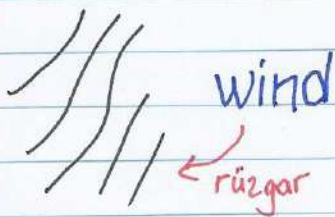 wind
rüzgar